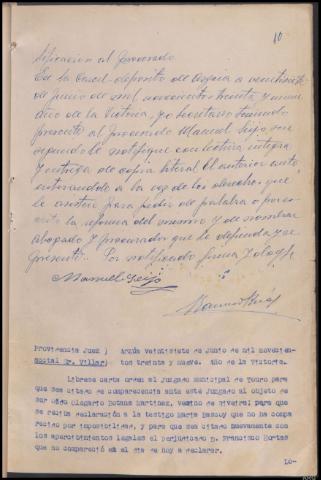 10
tificacion al procesado
En la Carcel deposito de Arzúa a veintisiete
de Junio de mil novecientos treinta y nueve
año de la Victoria, yo Secretario teniendo
presente al procesado Manuel Seijo, en
su persona le notifiqué con lectura íntegra
y entrega de copia literal el anterior auto
enterandole a la vez de los derechos que
le asisten para pedir de palabra o por es-
crito la reforma del mismo y de nombrar
Abogado y procurador que le defienda y re
presente. Por notificado firma y doy fe
Manuel Seijo
Providencia Juez ) Arzúa veintisiete de Junio de mil novecien-
Sr. Villar) tos treinta y nueve. Año de la Victoria.
Librese carta orden al Juzgado Municipal de Touro para
que sea citado de comparecencia ante este Juzgado al objeto de
ser oido Olegario Botana Martinez, vecino de Riveira; para que
se reciba declaración a la testigo Maria Bascoy que no ha compa
recido por imposibilidad, y para que sea citado nuevamente con
los apercibimientos legales el perjudicado D. Francisco
que no compareció en el dia de hoy a declarar.
Lo-